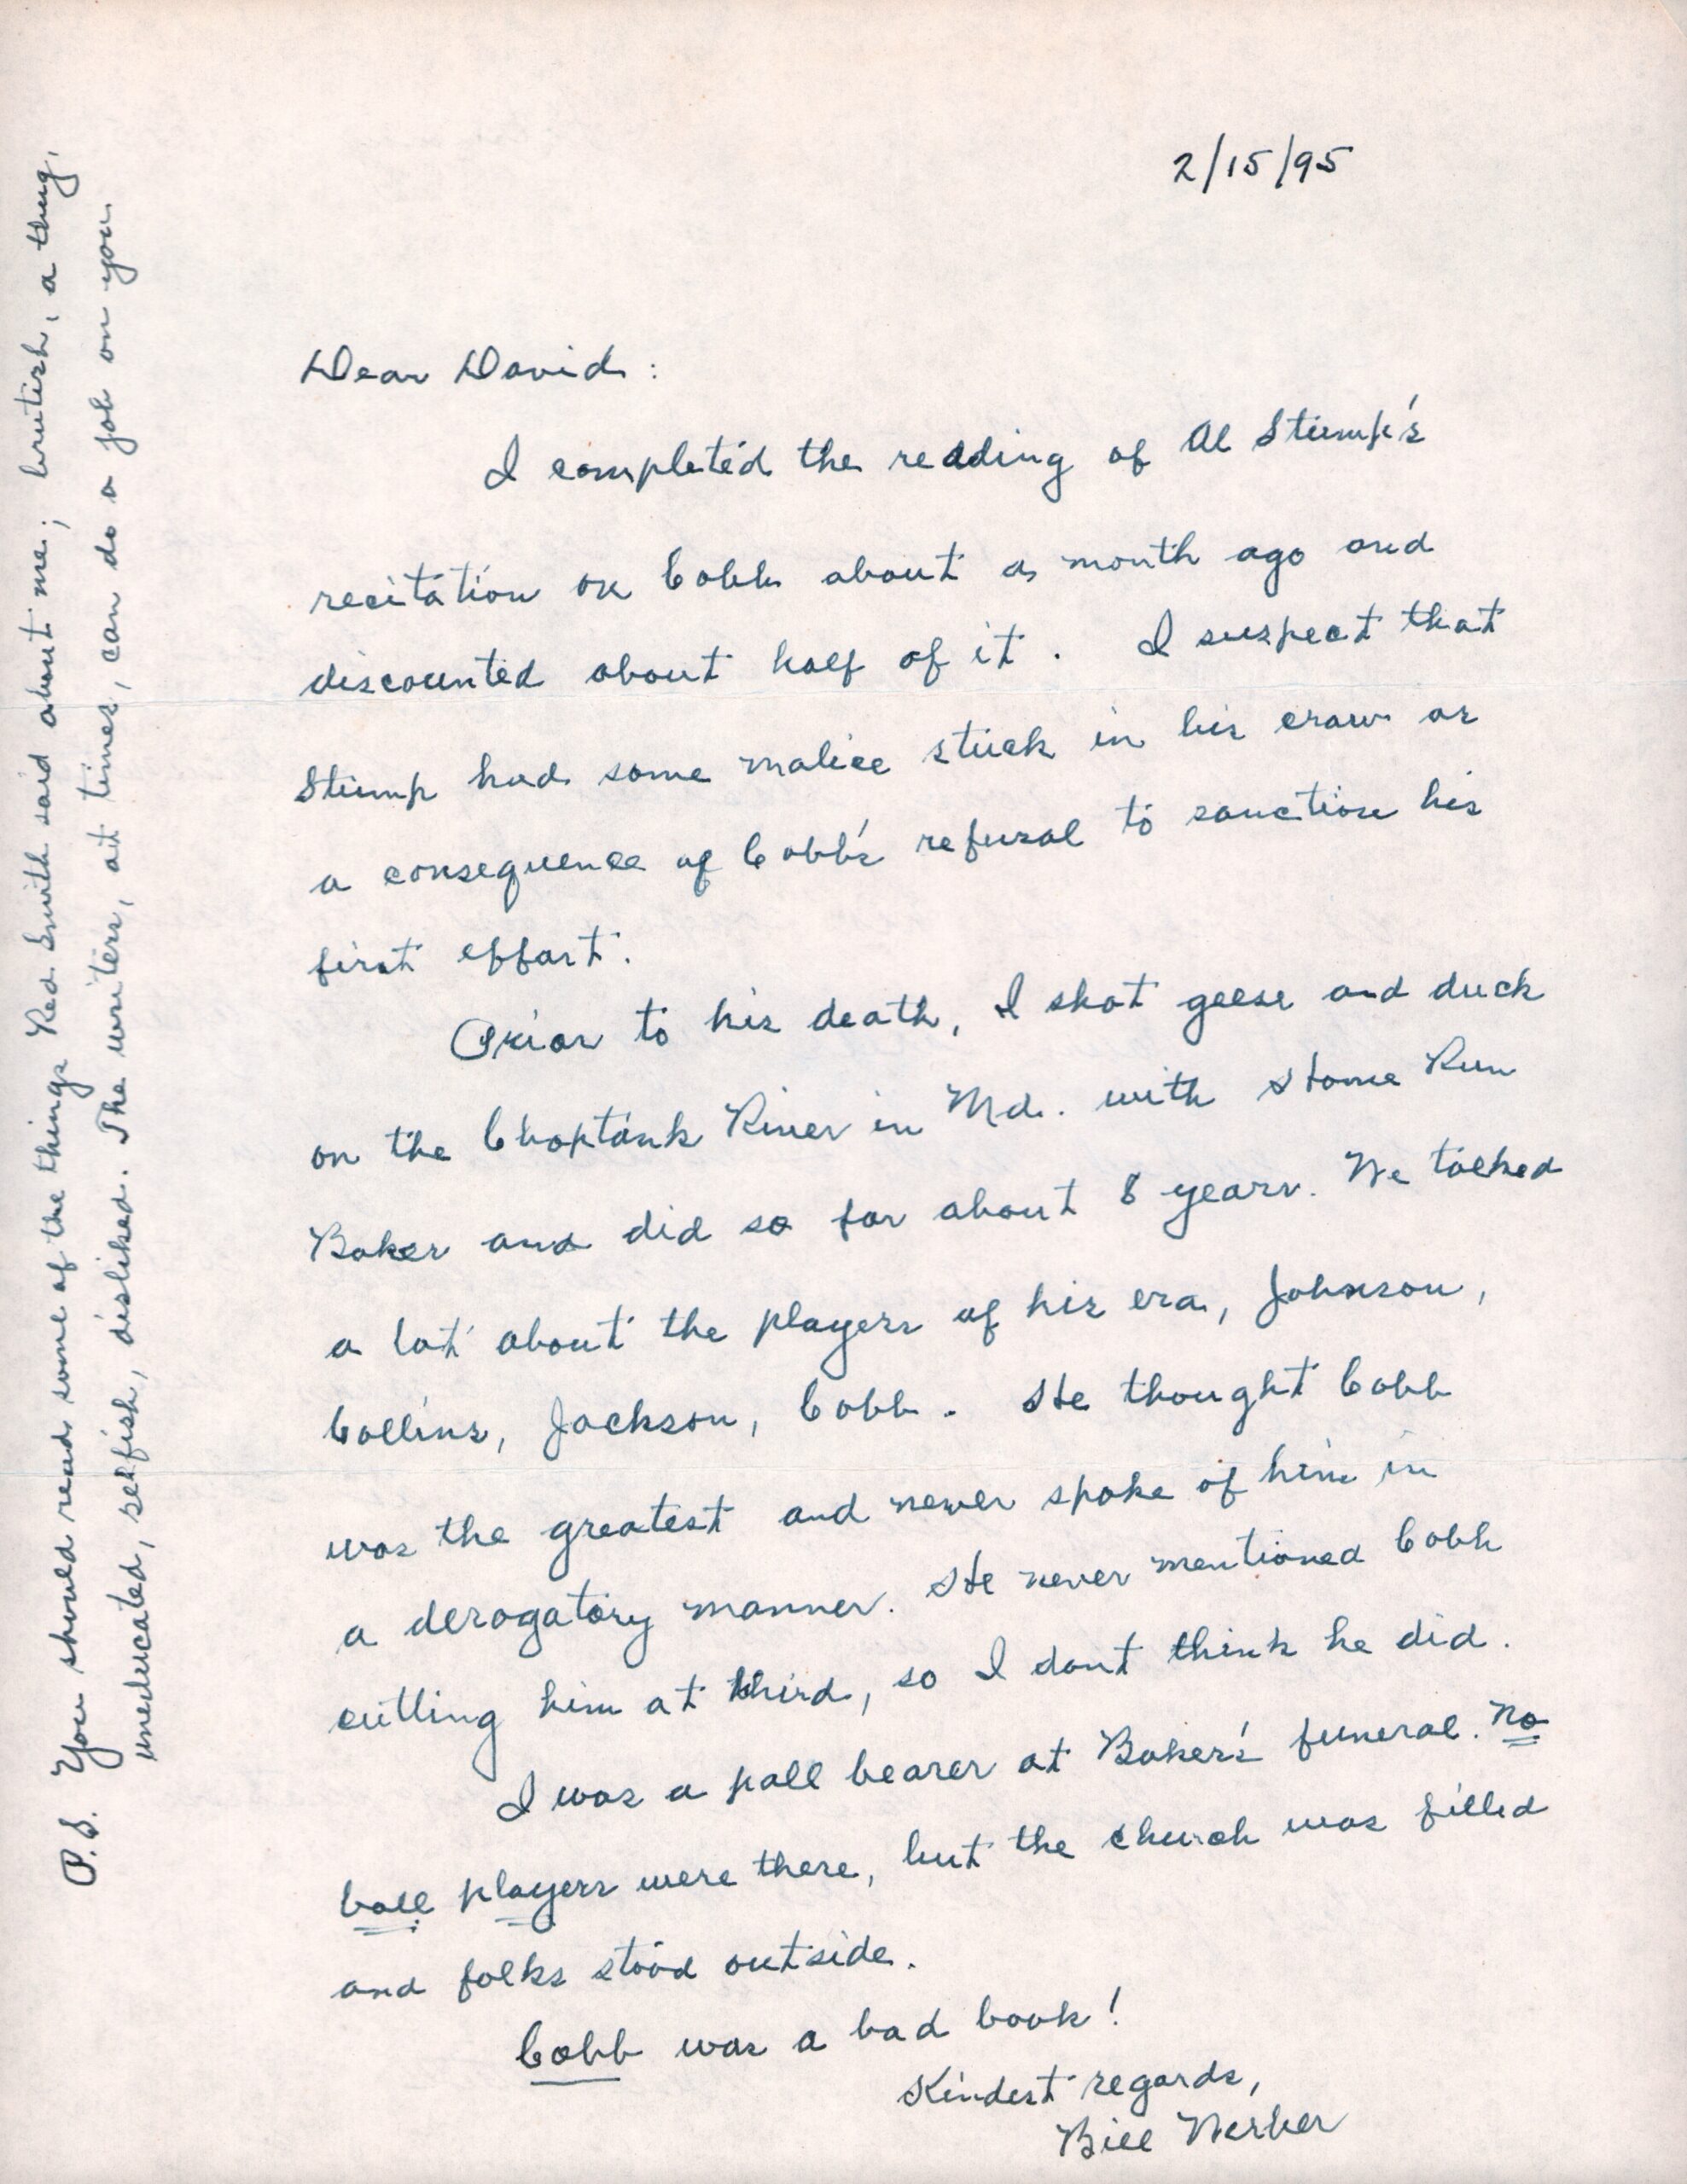 2/15/95
Dear David:
I completed the reading of Al Stump's
recitation on Cobb about a month ago and
discounted about half of it. I suspect that
Stump had some malice stuck in his craw as
a consequence of Cobb's refusal to sanction his
first effort.
Prior to his death, I shot geese and duck
on the Choptank River in Md. with Home Run
Baker and did so for about 8 years. We talked
a lot about the players of his era, Johnson,
Collins, Jackson, Cobb. He thought Cobb
was the greatest and never spoke of him in
a derogatory manner. He never mentioned Cobb
cutting him at third, so I dont think he did.
I was a pall bearer at Baker's funeral. No
ball players were there, but the church was filled
and folks stood outside.
Cobb was a bad book!
Kindest regards,
Bill Werber
P.S. You should read some of the things Red Smith said about me; brutish, a thug,
uneducated, selfish, disliked. The writers, at times, can do a job on you.